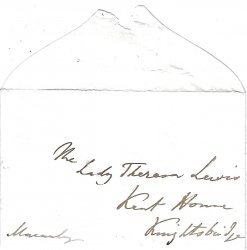 The
Lady Theresa Lewis
Kent House
Knightsbridge
Macaulay